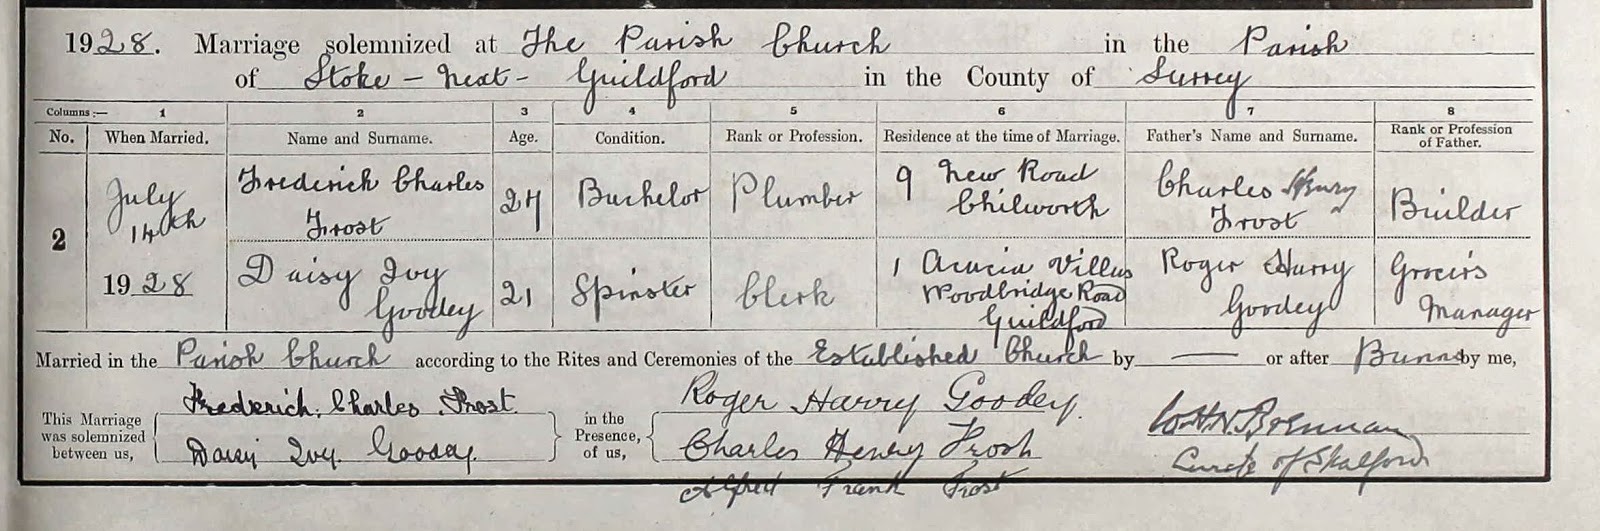 1928. Marriage solemnized at The Parish Church in the Parish
of Stoke - next - Guildford in the County of Surrey
Columns :— 1 2 3 4 5 6 7 8
No. When Married. Name and Surname. Age. Condition. Rank or Profession. Residence at the time of Marriage. Father's Name and Surname. Rank or Profession of Father.
2 July 14th 1928
Frederick Charles Frost 24 Bachelor Plumber 9 New Road Chilworth Charles Henry Frost Builder
Daisy Ivy Goodey 21 Spinster Clerk 1 Acacia Villas Woodbridge Road Guildford Roger Harry Goodey Grocer's Manager
Married in the Parish Church according to the Rites and Ceremonies of the Established Church by — or after Banns by me,
This Marriage was solemnized between us,
Frederick Charles Frost
Daisy Ivy Goodey
in the Presence of us,
Roger Harry Goodey.
Charles Henry Frost
Alfred Frank Frost
Brennan
Curate of Shalford